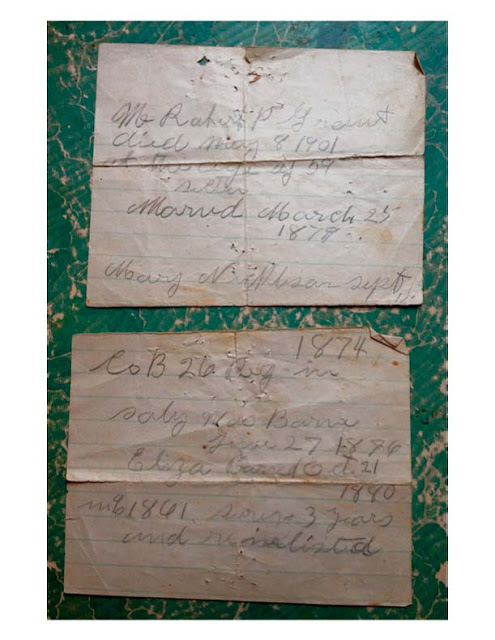 Mr Robert P Grant
died May 8 1901
at the age of 59
Marid March 25
1879
Mary Sept
1874
Co B 26 Reg
soly was Barn
June 27 1876
Eliza Barn Oct 21
1880
1861 serv 3 years
and reinlisted